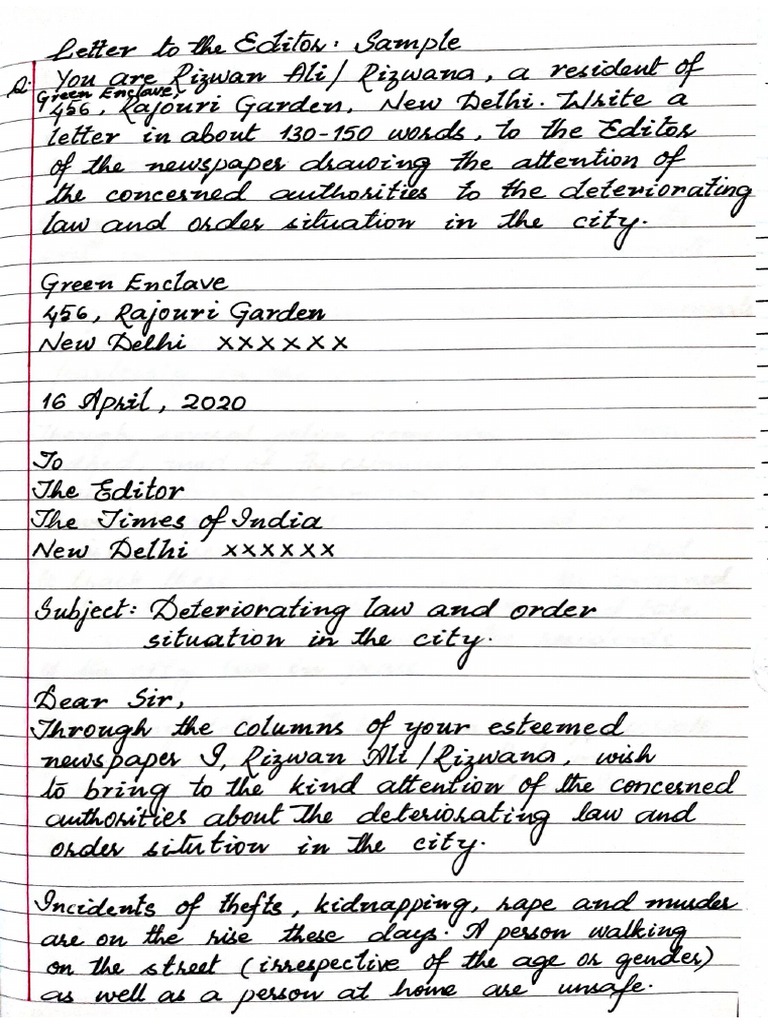 Letter to the Editor: Sample
Q. You are Rizwan Ali/ Rizwana, a resident of
Green Enclave,
456, Rajouri Garden, New Delhi. Write a
letter in about 130-150 words, to the Editor
of the newspaper drawing the attention of
the concerned authorities to the deteriorating
law and order situation in the city.
Green Enclave
456, Rajouri Garden
New Delhi xxxxxx
16 April, 2020
To
The Editor
The Times of India
New Delhi xxxxxx
Subject: Deteriorating law and order
situation in the city.
Dear Sir,
Through the columns of your esteemed
newspaper I, Rizwan Ali /Rizwana, wish
to bring to the kind attention of the concerned
authorities about the deteriorating law and
order sitution in the city.
Incidents of thefts, kidnapping, rape and murder
are on the rise these days. A person walking
on the street (irrespective of the age or gender)
as well as a person at home are unsafe.